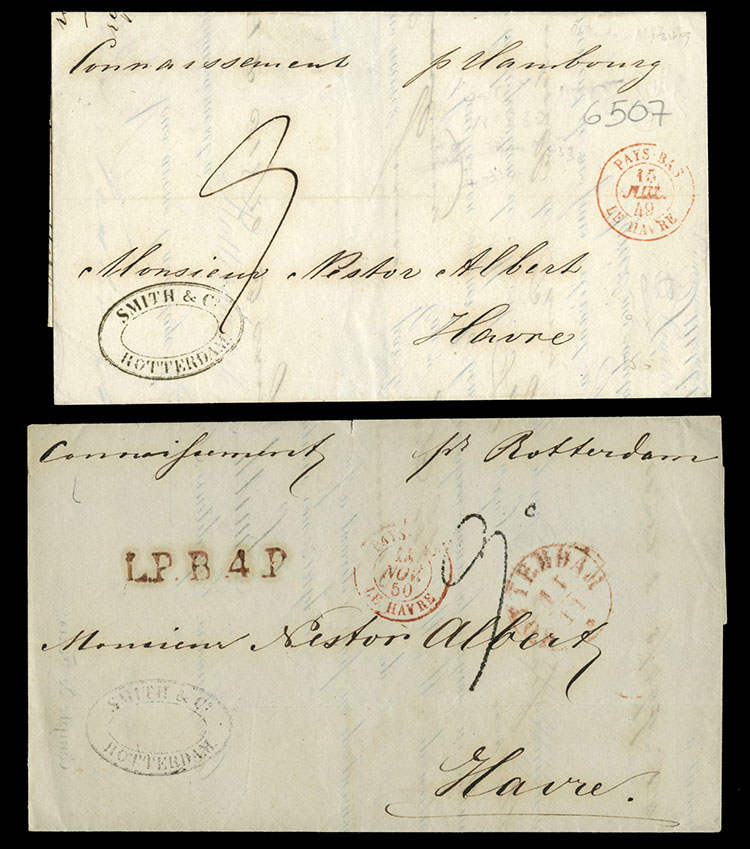 Connaissement pr Hambourg
6507
PAYS-BAS
15
JUIL.
49
LE HAVRE
9
Monsieur Nestor Albert
SMITH & Co.
ROTTERDAM.
Havre
Connaissement pr Rotterdam
c
L.P.B.4.P
PAYS-BAS
14
NOV.
50
LE HAVRE
9
TERDAM
11
11
Monsieur Nestor Albert
SMITH & Co.
ROTTERDAM.
Havre.